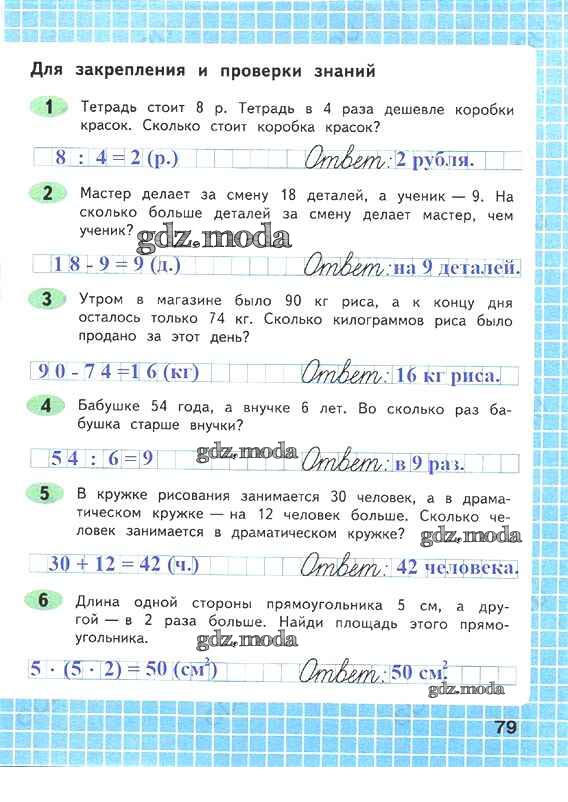 Для закрепления и проверки знаний
1 Тетрадь стоит 8 р. Тетрадь в 4 раза дешевле коробки
красок. Сколько стоит коробка красок?
8 : 4 = 2 (р.) Ответ: 2 рубля.
2 Мастер делает за смену 18 деталей, а ученик — 9. На
сколько больше деталей за смену делает мастер, чем
ученик?
gdz.moda
18 - 9 = 9 (д.) Ответ: на 9 деталей.
3 Утром в магазине было 90 кг риса, а к концу дня
осталось только 74 кг. Сколько килограммов риса было
продано за этот день?
90 - 74 =16 (кг) Ответ: 16 кг риса.
4 Бабушке 54 года, а внучке 6 лет. Во сколько раз ба-
бушка старше внучки?
54 : 6 = 9 gdz.moda Ответ: в 9 раз.
5 В кружке рисования занимается 30 человек, а в драма-
тическом кружке — на 12 человек больше. Сколько че-
ловек занимается в драматическом кружке?
gdz.moda
30 + 12 = 42 (ч.) Ответ: 42 человека.
6 Длина одной стороны прямоугольника 5 см, а дру-
гой — в 2 раза больше. Найди площадь этого прямо-
угольника.
gdz.moda
5 · (5 · 2) = 50 (см²) Ответ: 50 см².
gdz.moda
79